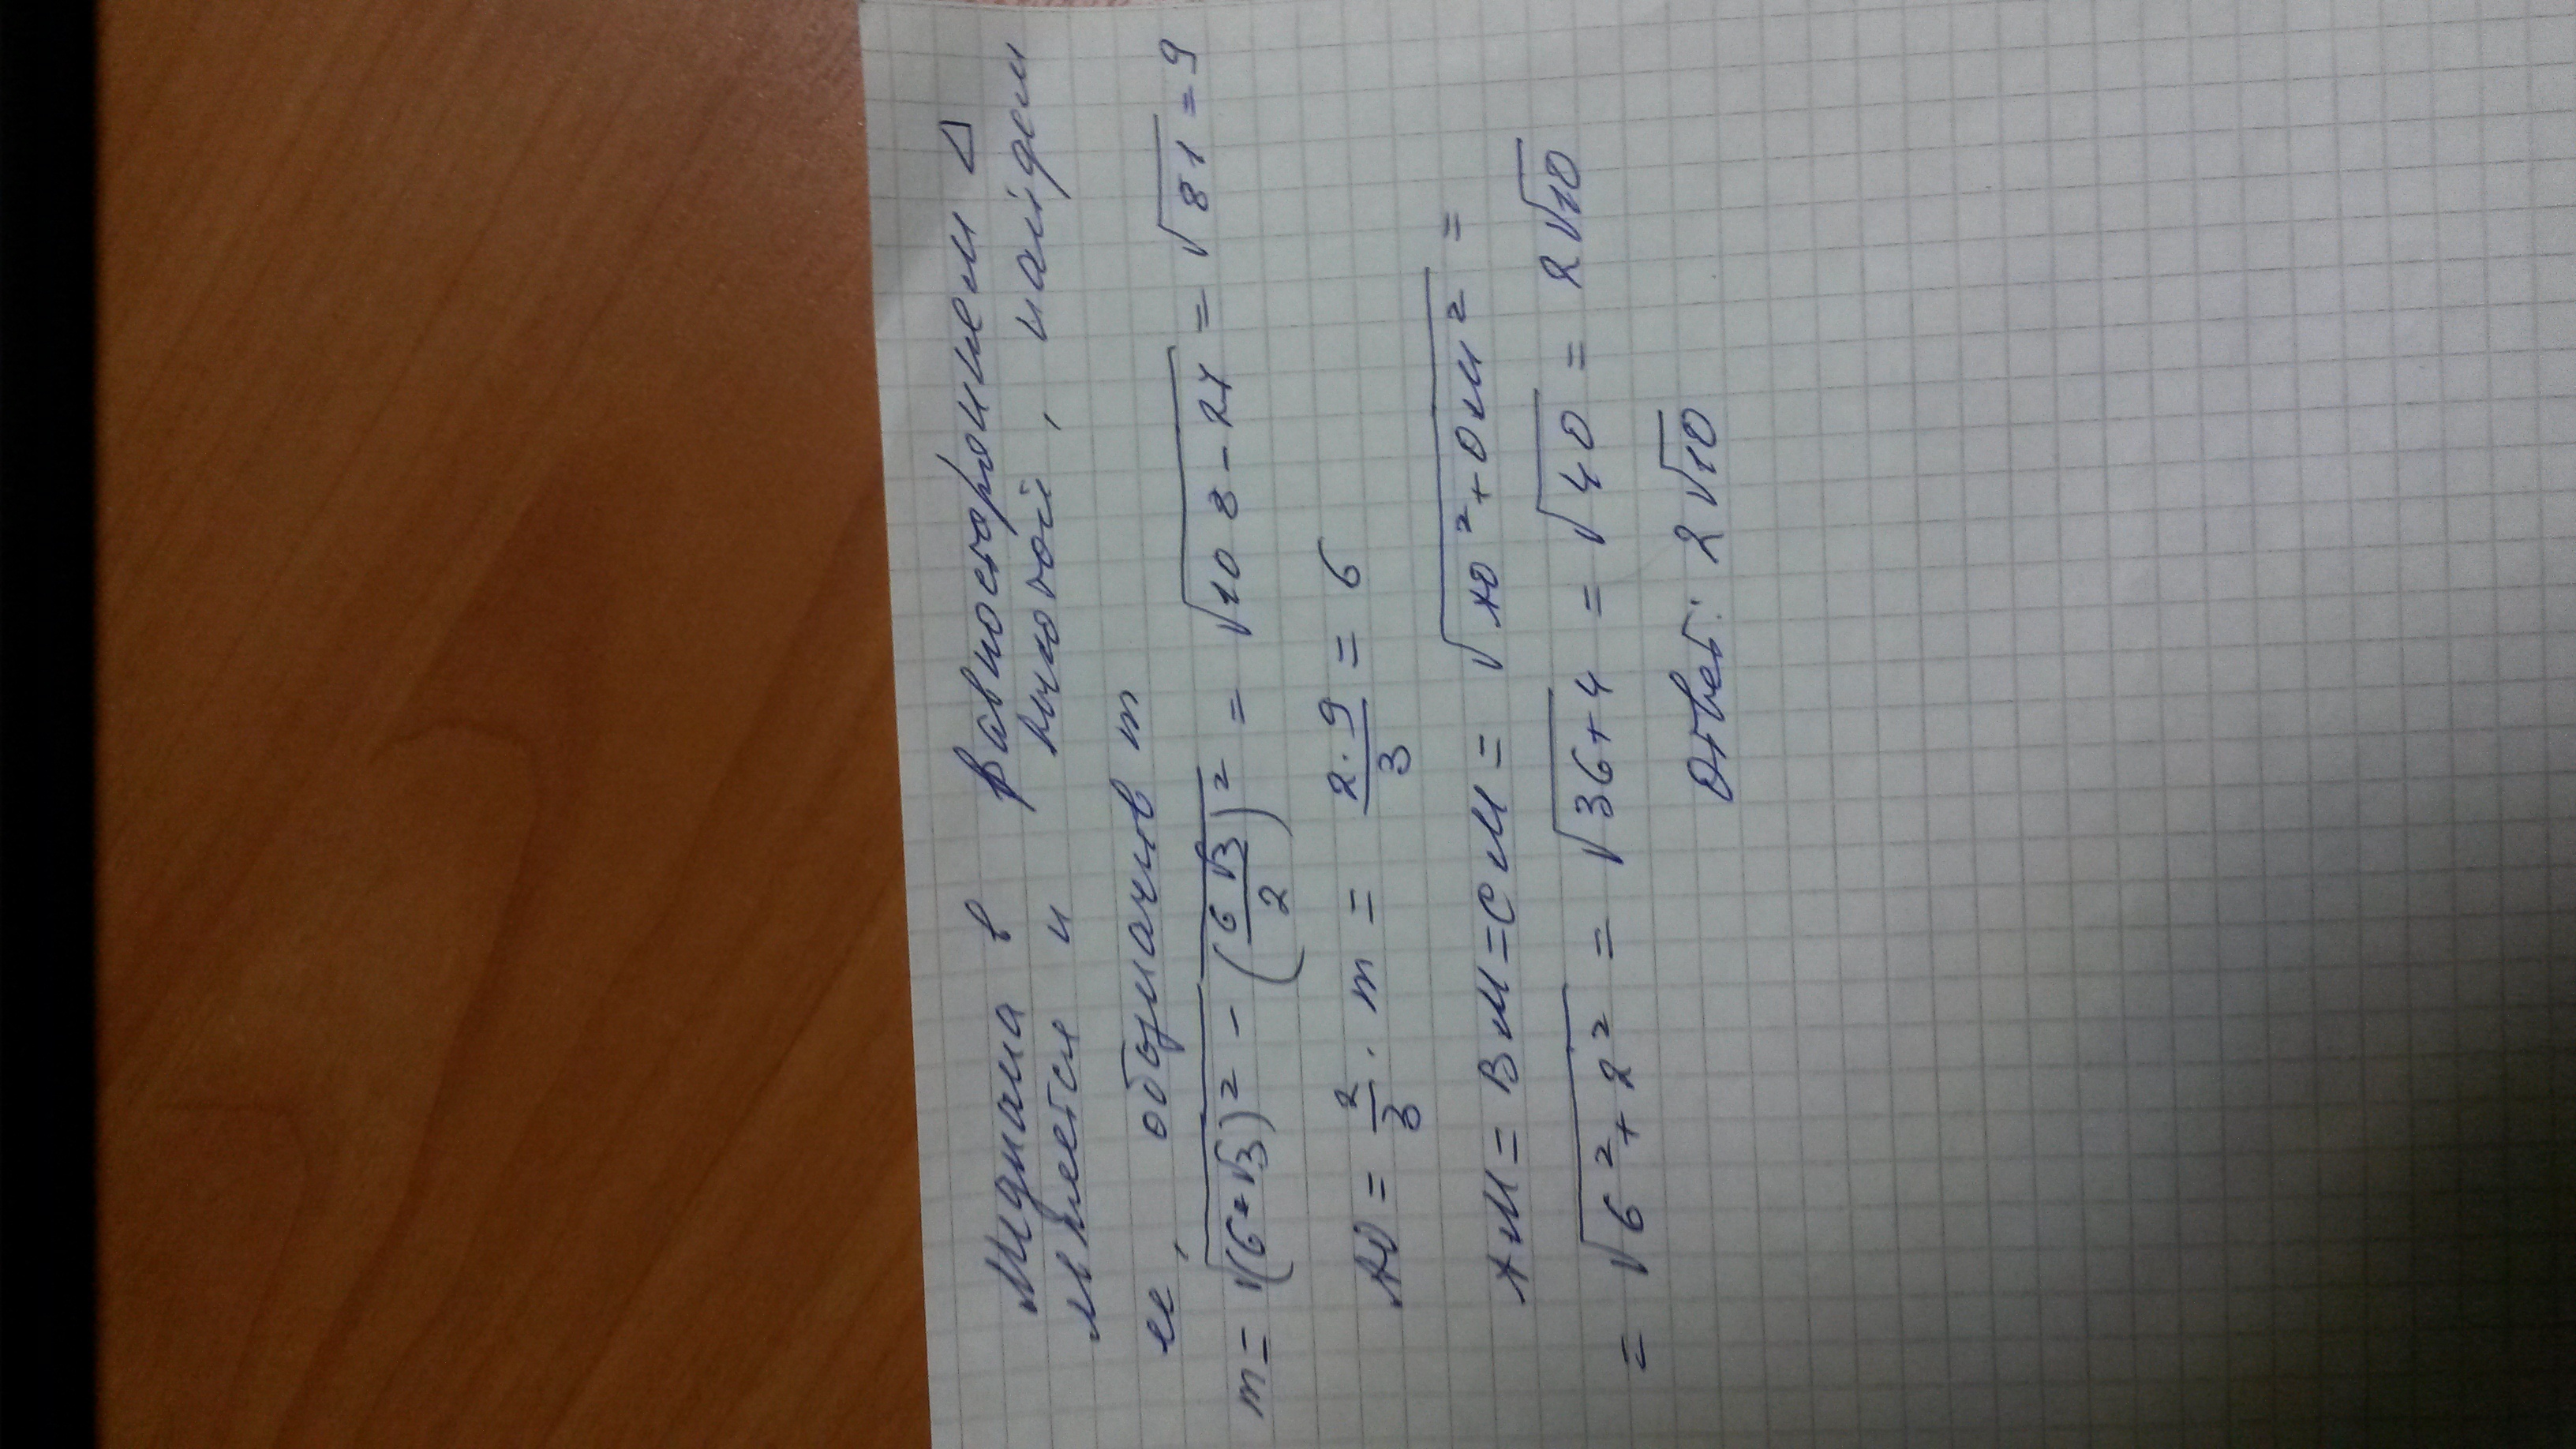 Медиана в равностороннем △
является и высотой, найдем
ее, обозначив m
m = √((6*√3)² - (6√3/2)²) = √(108-27) = √81 = 9
AO = 2/3 · m = 2·9/3 = 6
AM = BM = CM = √(AO² + OM²) =
= √(6² + 2²) = √(36+4) = √40 = 2√10
Ответ: 2√10